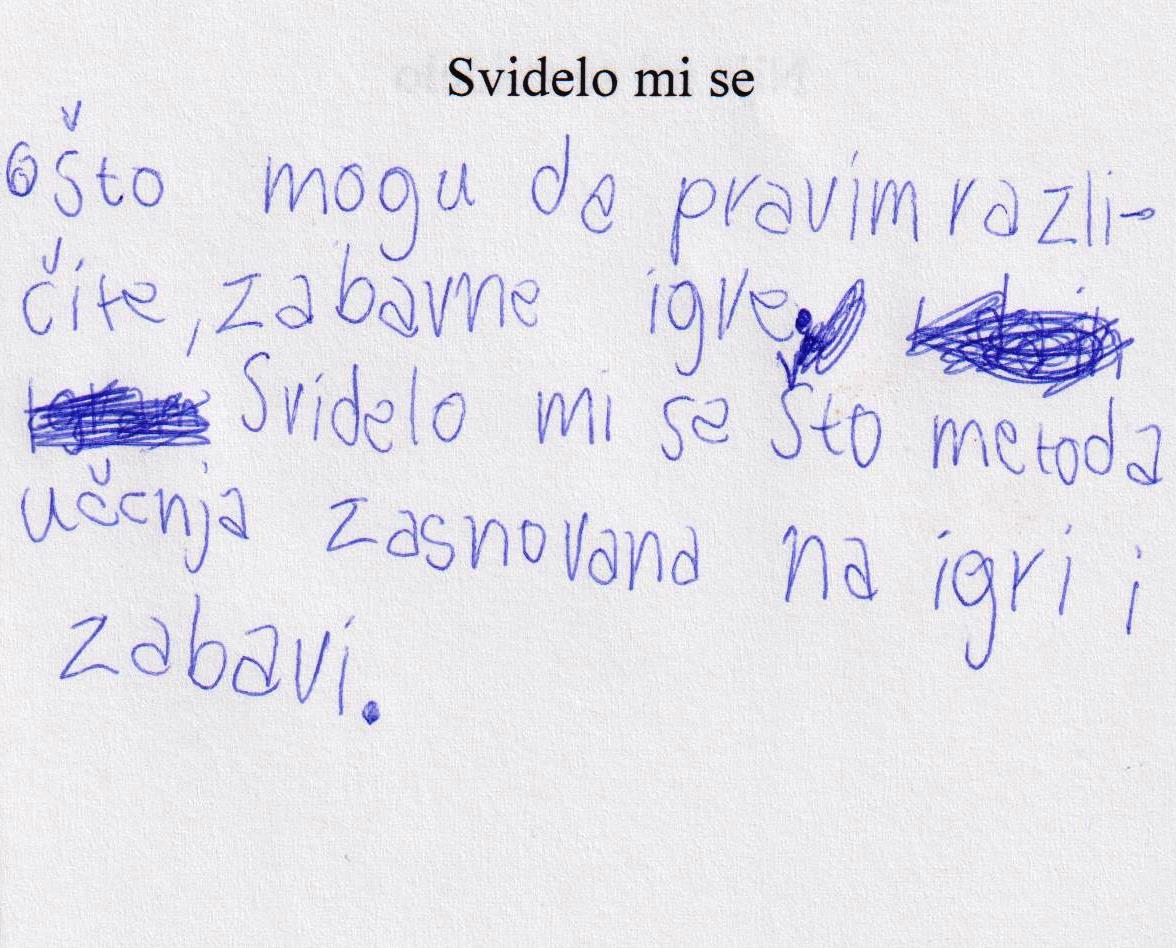 Svidelo mi se
što mogu da pravim razli-
čite, zabavne igre.
Svidelo mi se što metoda
učenja zasnovana na igri i
zabavi.